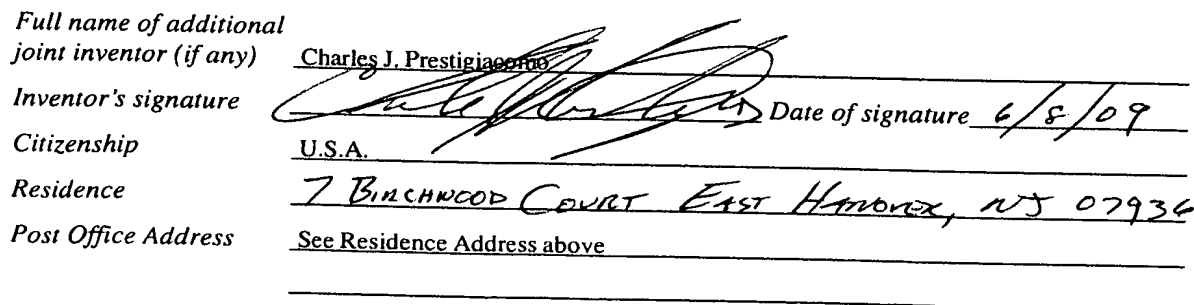 Full name of additional
joint inventor (if any) Charles J. Prestigiacomo
Inventor's signature Date of signature 6/8/09
Citizenship U.S.A.
Residence 7 BIRCHWOOD COURT EAST HANOVER, NJ 07936
Post Office Address See Residence Address above